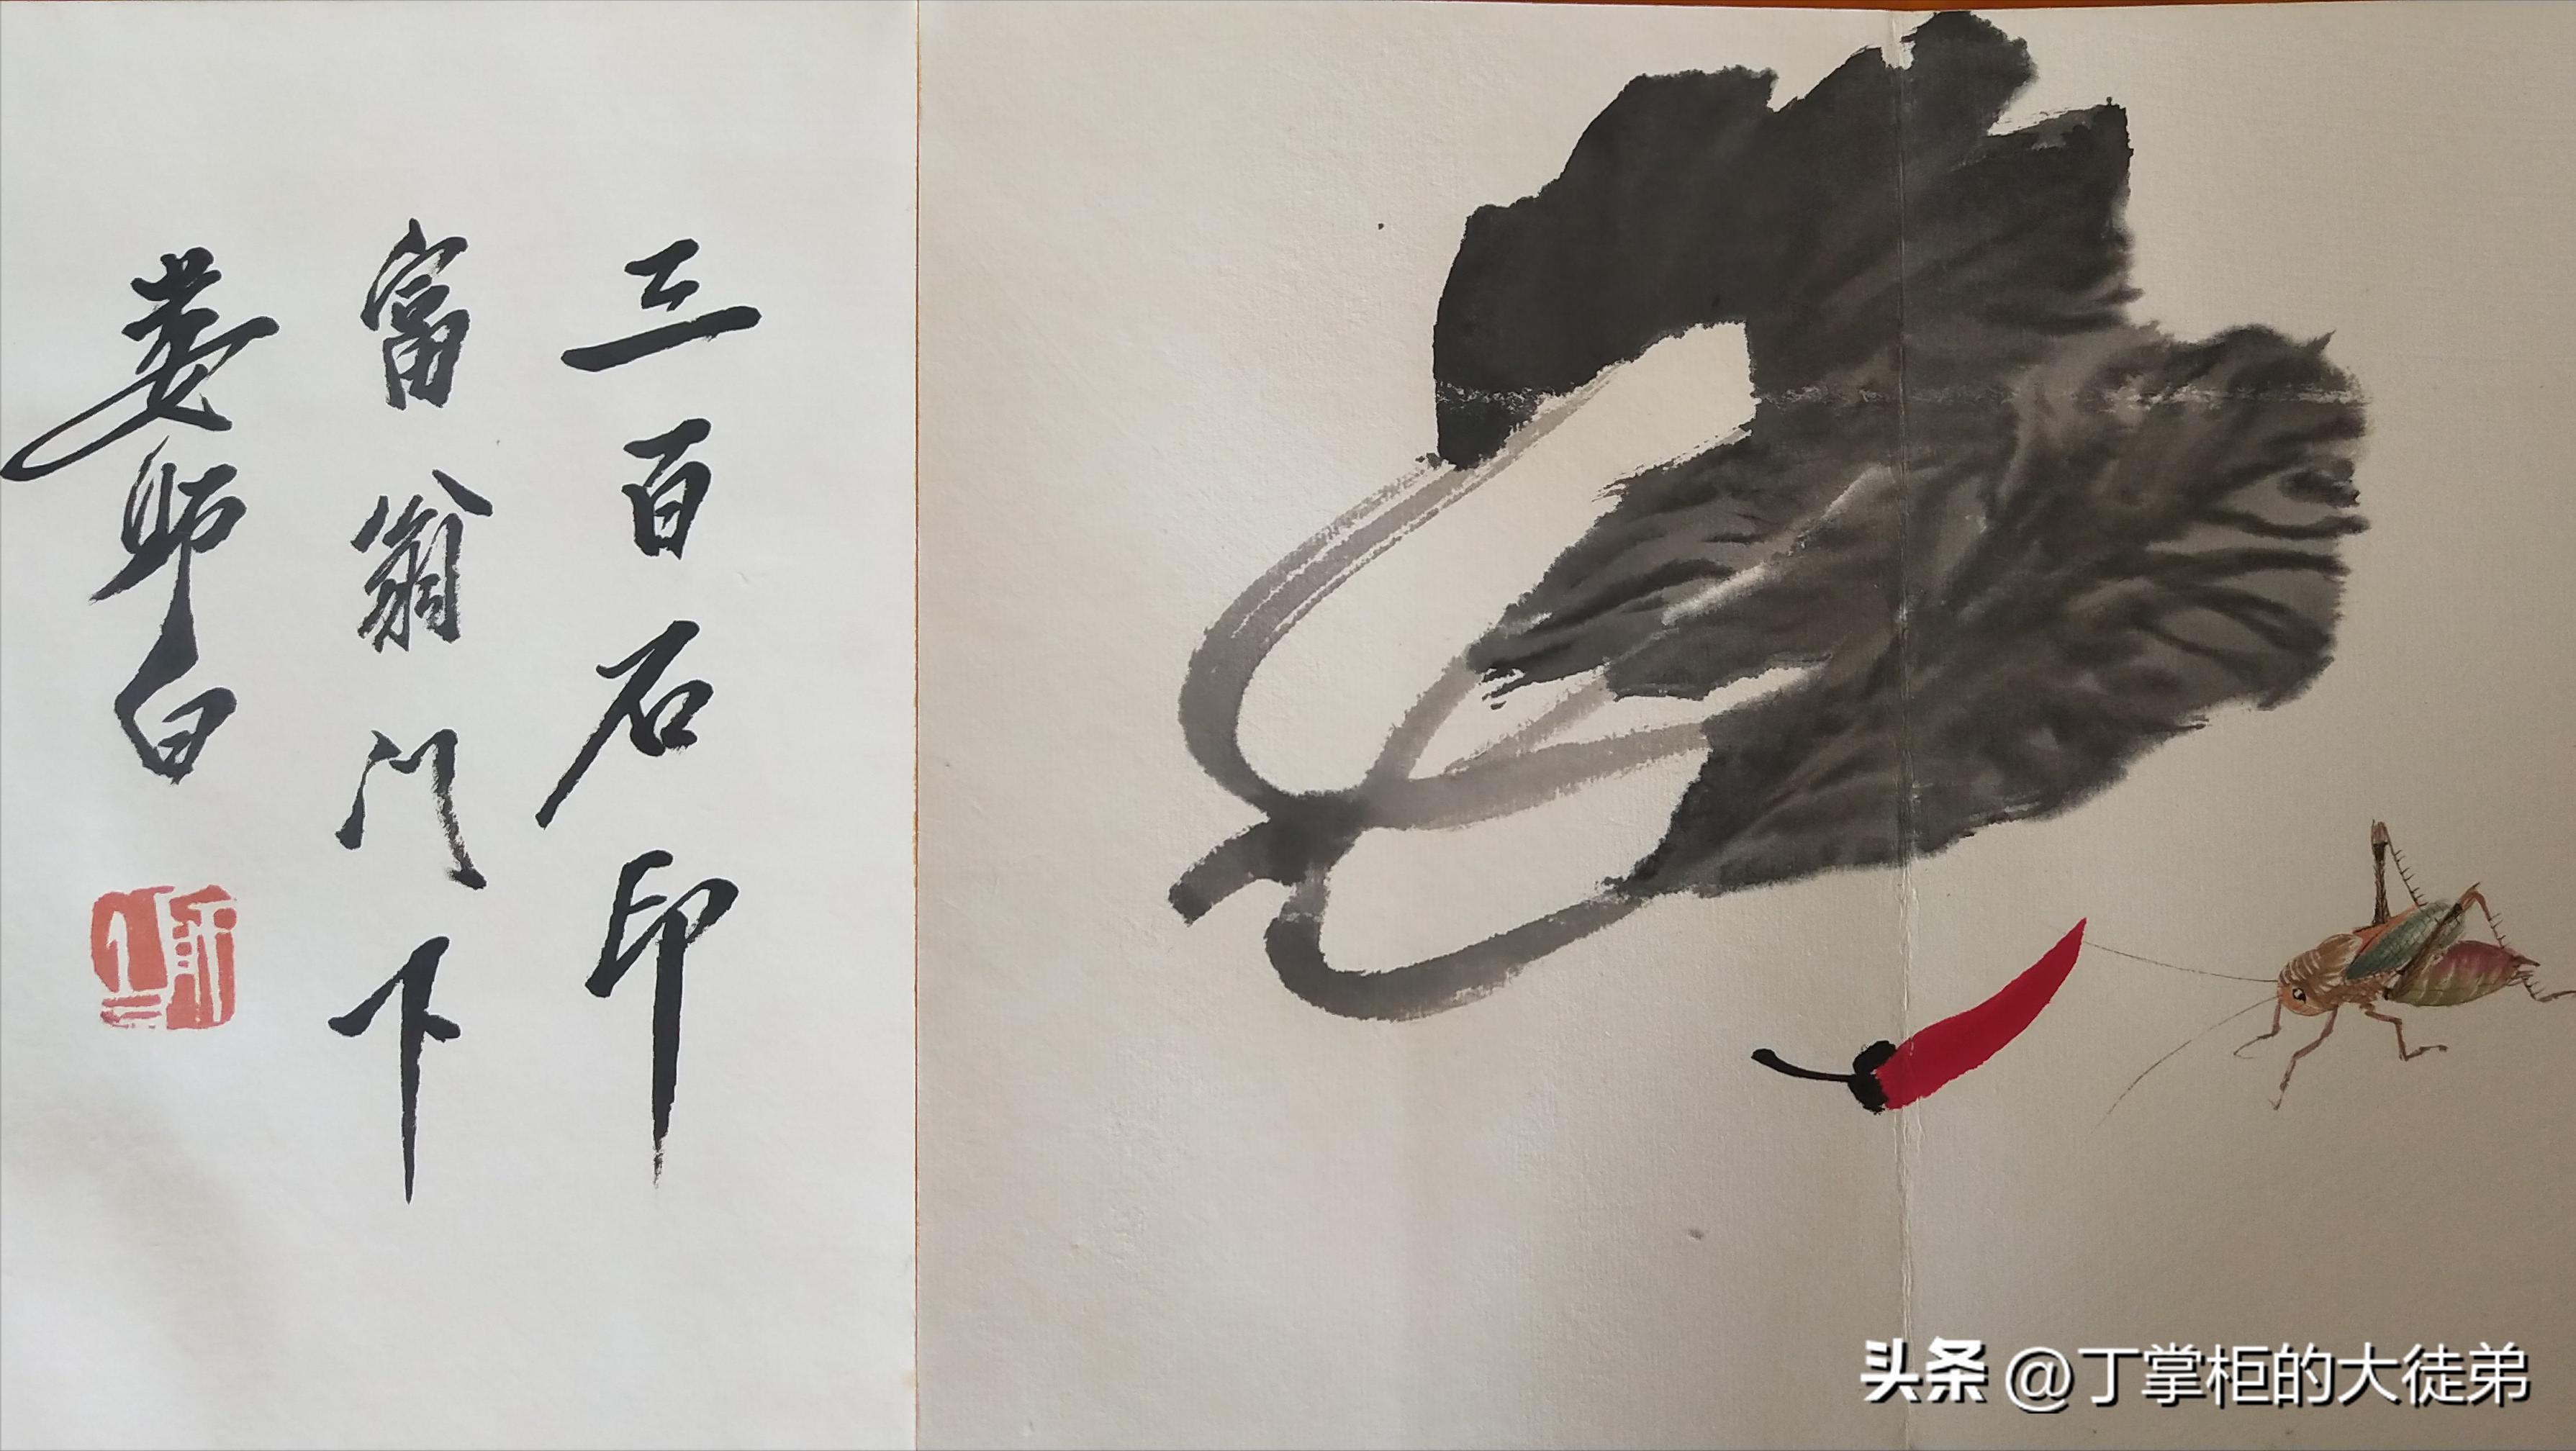 三百石印
富翁门下
娄师白
师白
头条 @丁掌柜的大徒弟